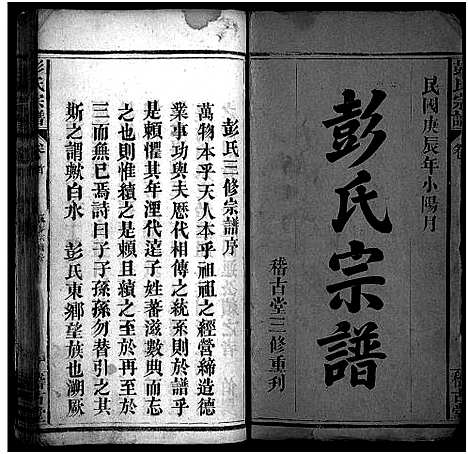 民國庚辰年小陽月
彭氏宗譜
稽古堂三修重刋
彭氏三修宗譜序
萬物本乎天人本乎祖祖之經營締造德
業事功與夫歷代相傳之統系則於譜乎
是賴懼其年湮代遠子姓蕃滋數典而忘
也然則惟續之是賴且續之至於再至於
三而無已焉詩曰子子孫孫勿替引之其
斯之謂歟白水 彭氏東鄉望族也溯厥
彭氏宗譜